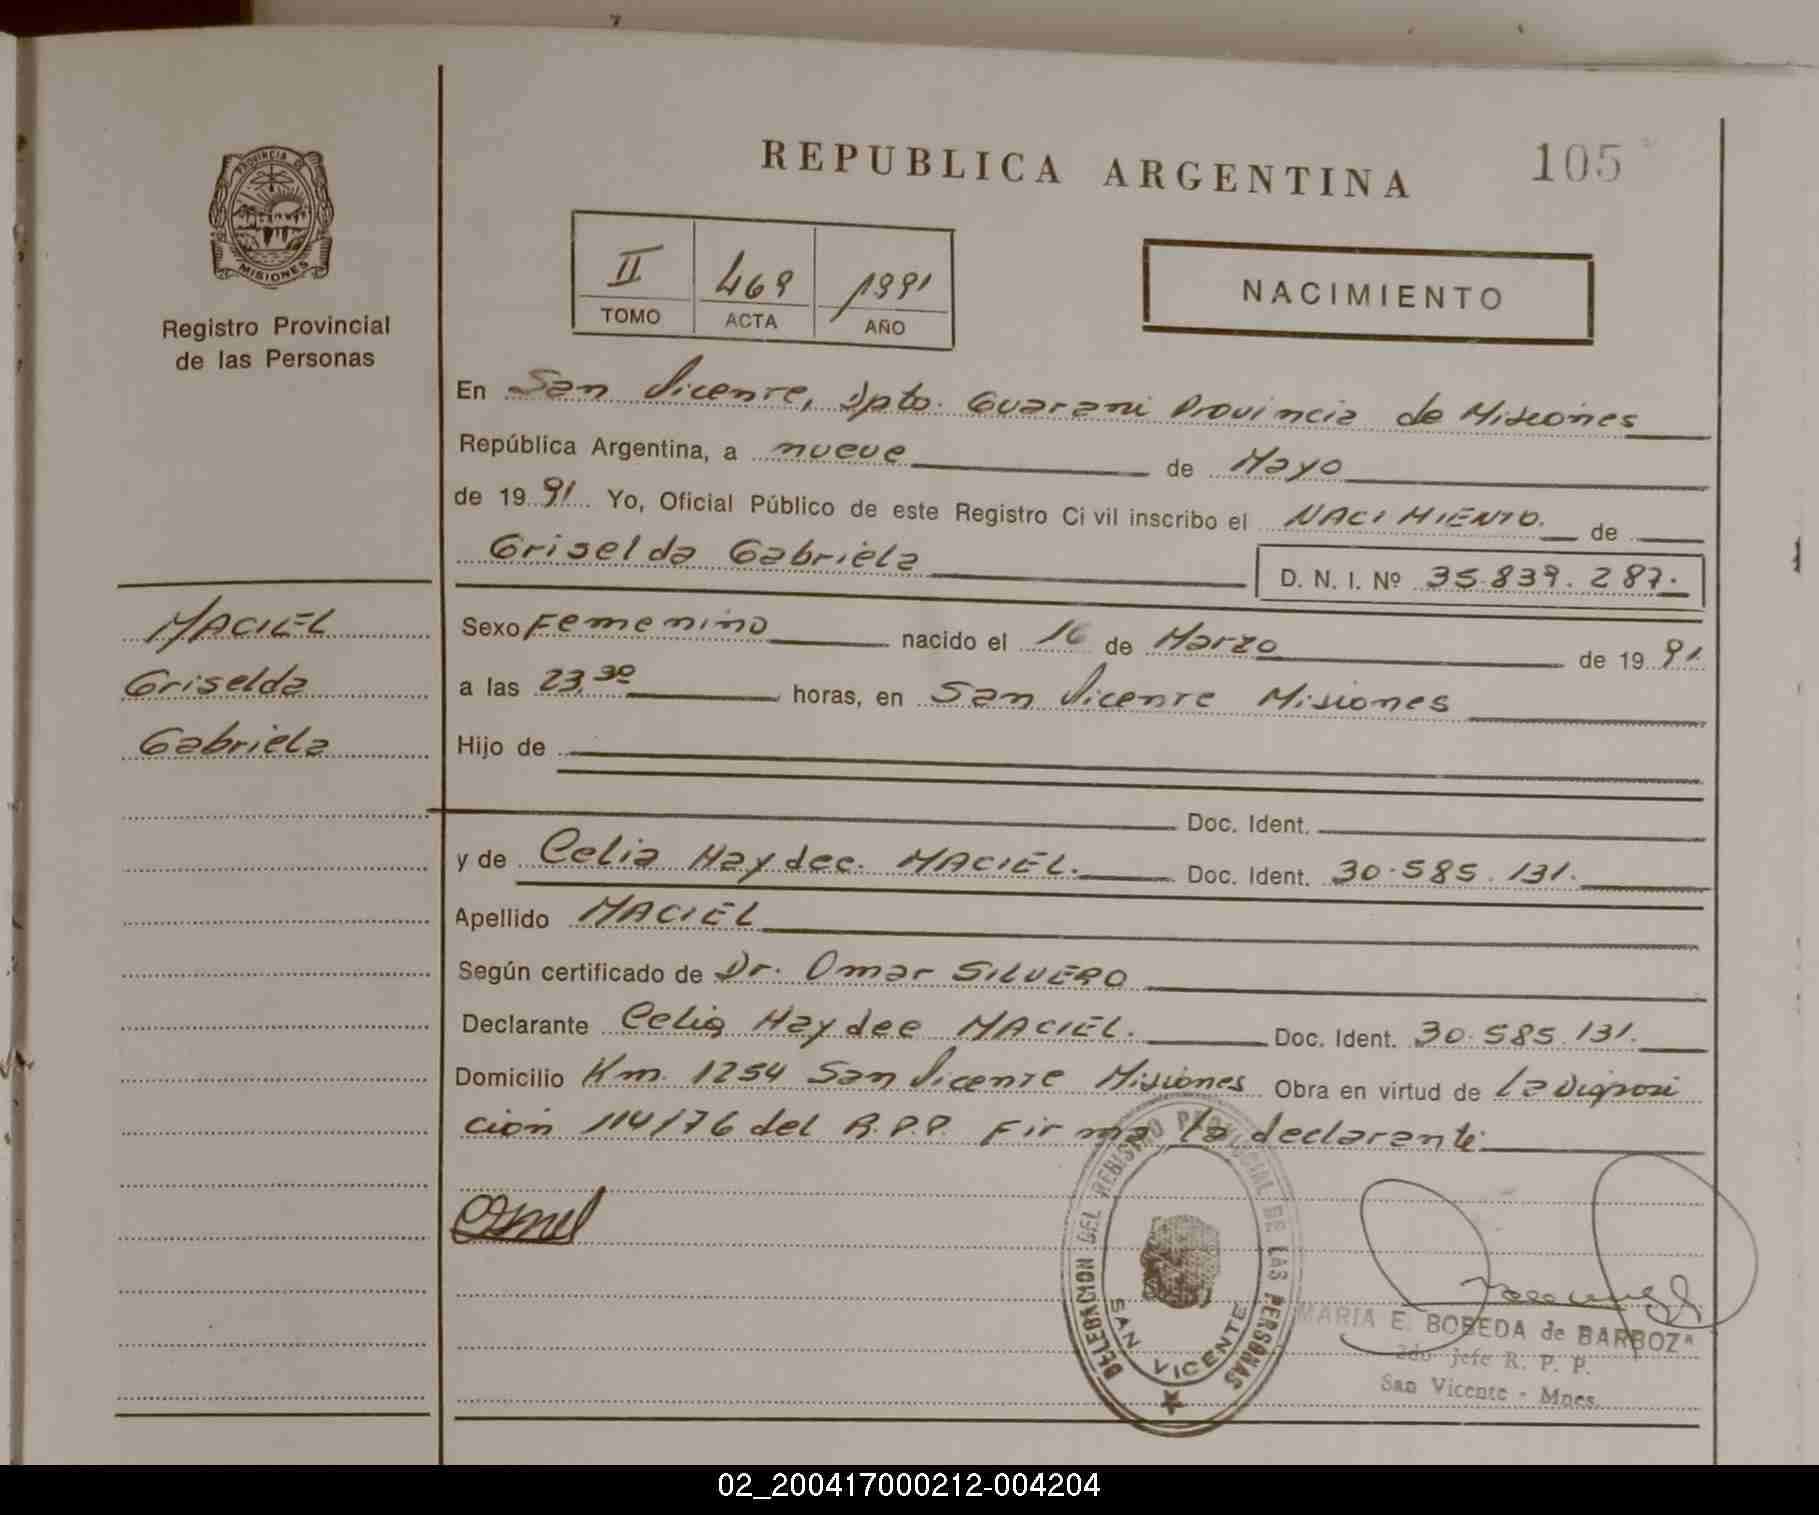 REPUBLICA ARGENTINA
105
PROVINCIA DE
MISIONES
Registro Provincial
de las Personas
II 469 1991
TOMO ACTA AÑO
NACIMIENTO
En San Vicente, Dpto. Guarani Provincia de Misiones
República Argentina, a nueve de Mayo
de 1991. Yo, Oficial Público de este Registro Civil inscribo el NACIMIENTO. de
Griselda Gabriela D. N. I. Nº 35.839.287.
MACIEL
Griselda
Gabriela
Sexo Femenino nacido el 16 de Marzo de 1991.
a las 23,30 horas, en San Vicente Misiones
Hijo de
Doc. Ident.
y de Celia Haydee. MACIEL. Doc. Ident. 30.585.131.
Apellido MACIEL
Según certificado de Dr. Omar SILVERO
Declarante Celia Haydee MACIEL. Doc. Ident. 30.585.131.
Domicilio Km. 1254 San Vicente Misiones Obra en virtud de La
ción 114/76 del R.P.P. Firma la declarante.
DELEGACION DEL REGISTRO PROVINCIAL DE LAS PERSONAS
SAN VICENTE
MARIA E. BOBEDA de BARBOZA
2do Jefe R. P. P.
San Vicente - Mnes.
02_200417000212-004204